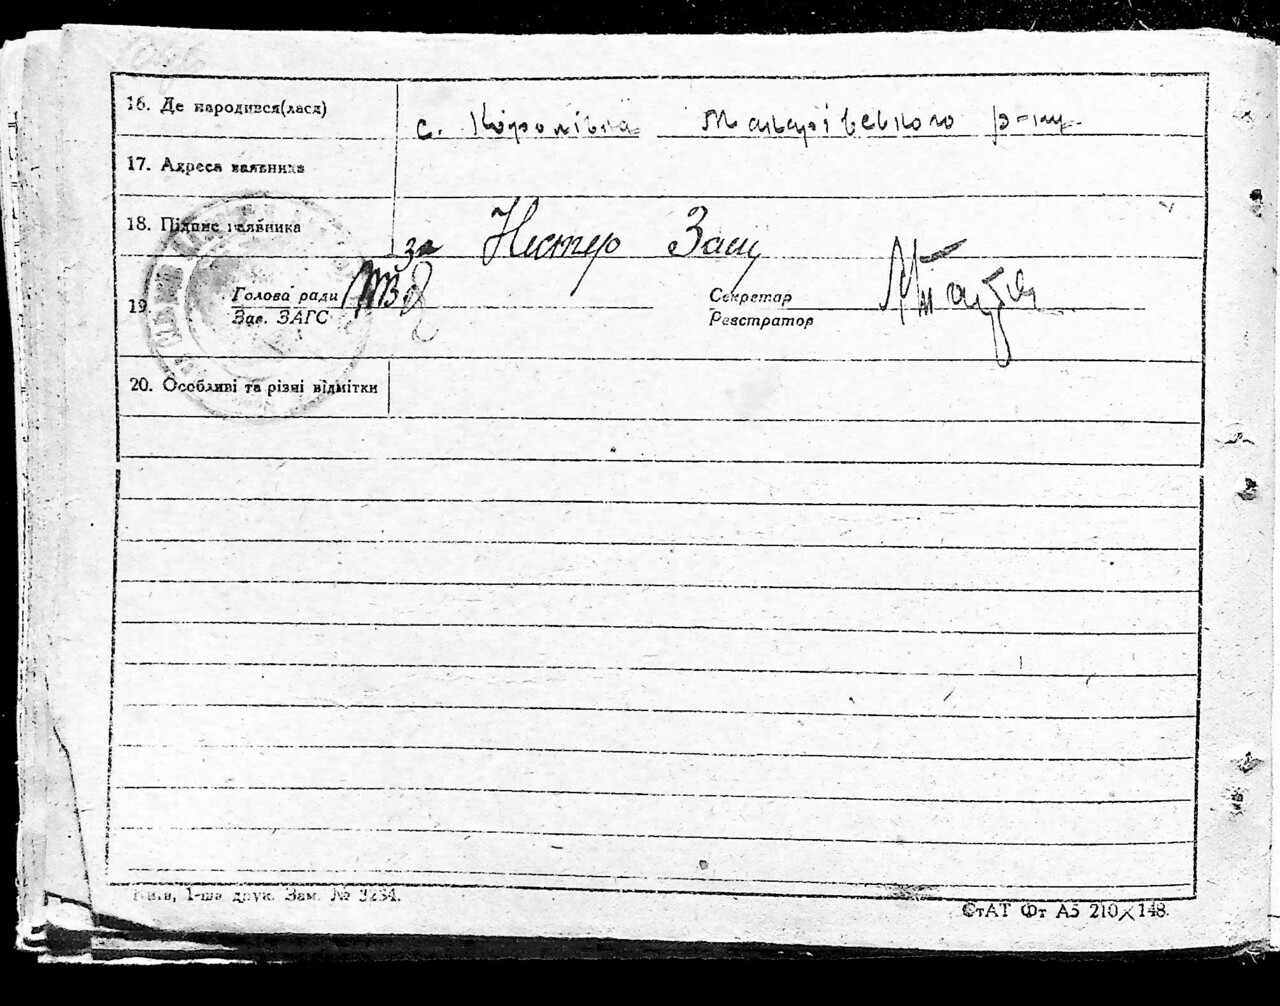 16. Де народився(лася) с. Королівка Макарівського р-ну
17. Адреса заявника
18. Підпис заявника за Нестер Заєц
19 Голова ради Секретар
Зав. ЗАГС Реєстратор
20. Особливі та різні відмітки
Київ, 1-ша друк. Зам. № 3234.
СтАТ Фт А5 210×148.